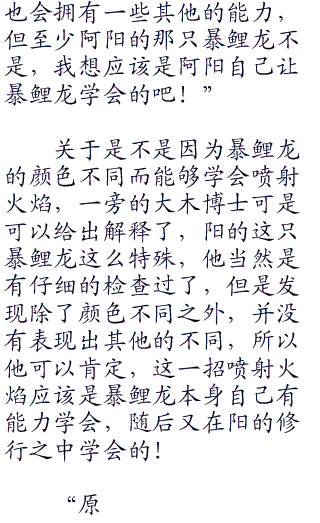 也会拥有一些其他的能力，
但至少阿阳的那只暴鲤龙不
是，我想应该是阿阳自己让
暴鲤龙学会的吧！”
关于是不是因为暴鲤龙
的颜色不同而能够学会喷射
火焰，一旁的大木博士可是
可以给出解释了，阳的这只
暴鲤龙这么特殊，他当然是
有仔细的检查过了，但是发
现除了颜色不同之外，并没
有表现出其他的不同，所以
他可以肯定，这一招喷射火
焰应该是暴鲤龙本身自己有
能力学会，随后又在阳的修
行之中学会的！
“原